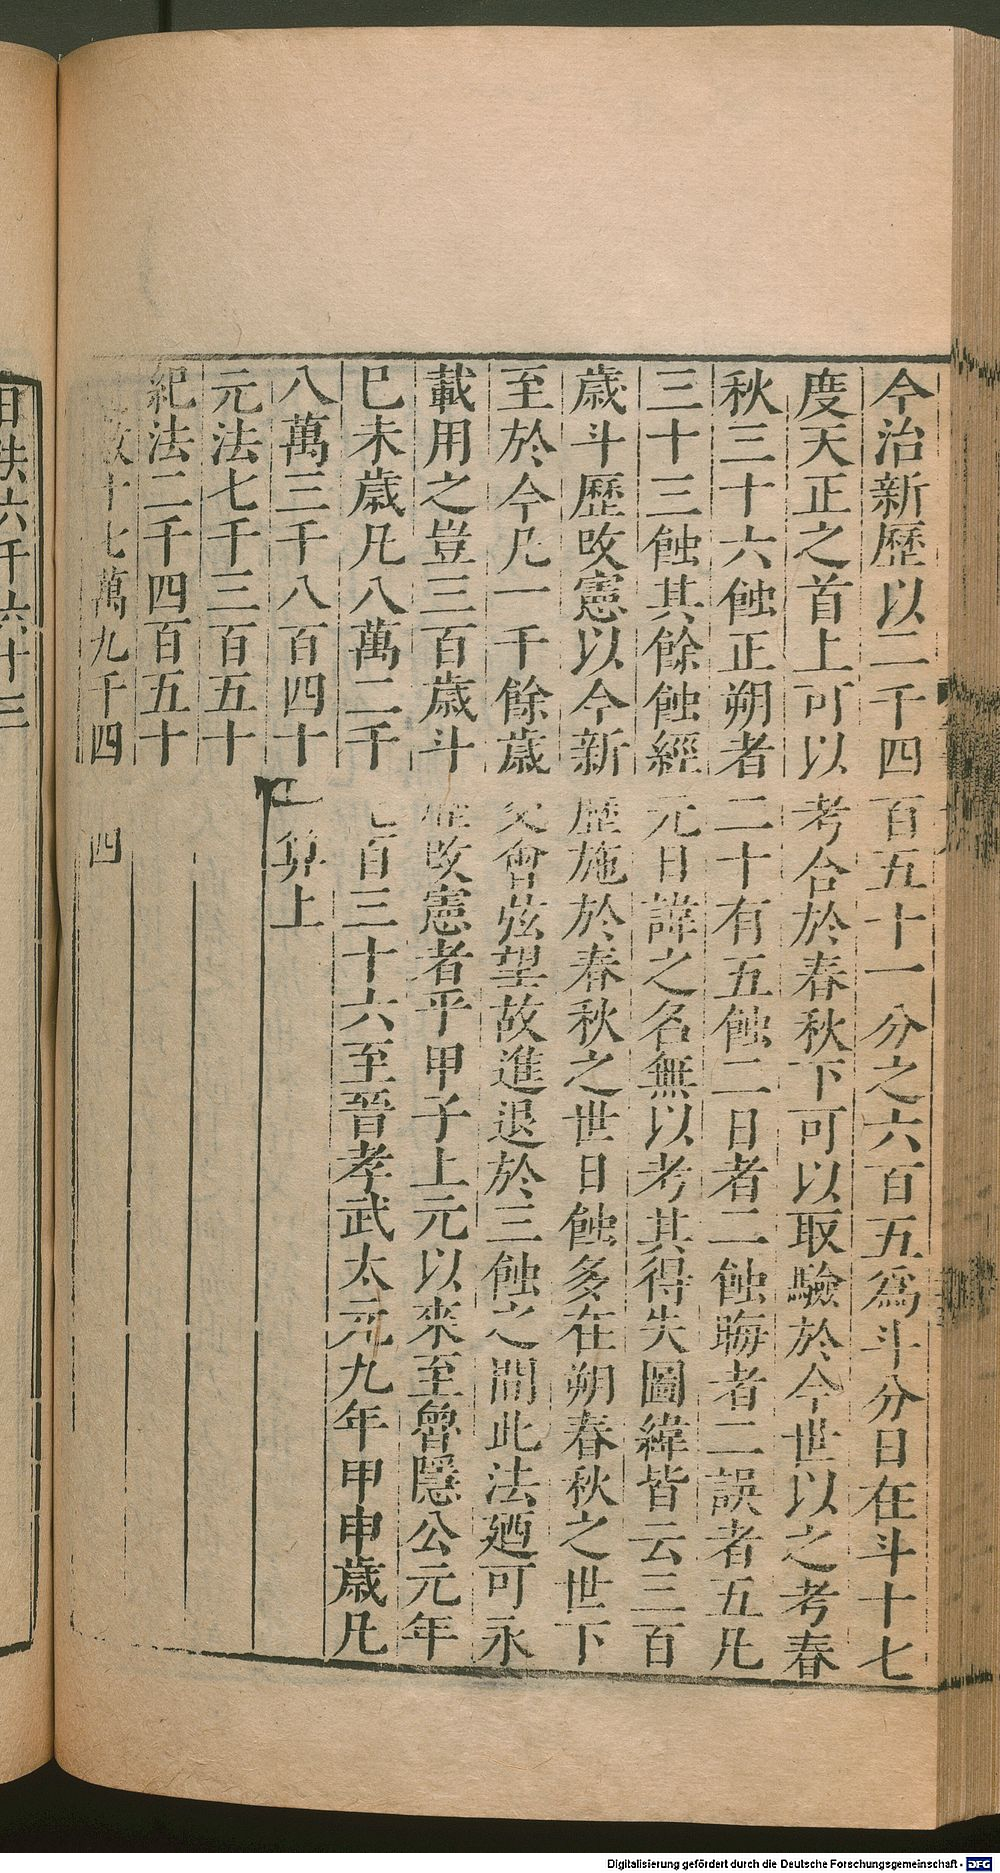 今治新歷以二千四百五十一分之六百五爲斗分日在斗十七
度天正之首上可以考合於春秋下可以取驗於今世以之考春
秋三十六蝕正朔者二十有五蝕二日者二蝕晦者二誤者五凡
三十三蝕其餘蝕經元日諱之名無以考其得失圖緯皆云三百
歲斗歷改憲以今新歷施於春秋之世日蝕多在朔春秋之世下
至於今凡一千餘歲交會弦望故進退於三蝕之間此法廼可永
載用之豈三百歲斗歷改憲者乎甲子上元以來至魯隱公元年
已未歲凡八萬二千七百三十六至晉孝武太元九年甲申歲凡
八萬三千八百四十一算上
元法七千三百五十
紀法二千四百五十
十七萬九千四 四
日法六千六十三
Digitalisierung gefördert durch die Deutsche Forschungsgemeinschaft - DFG